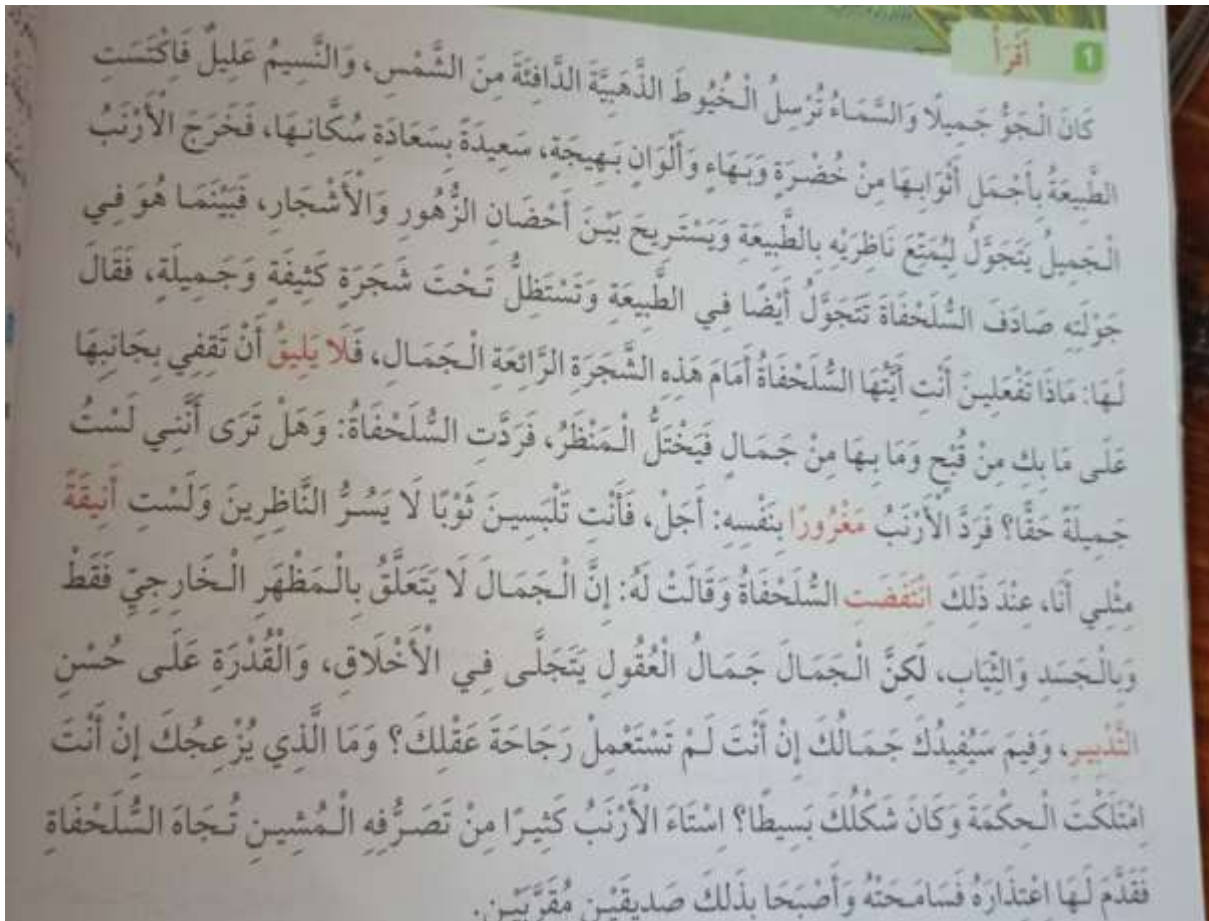 1 أَقْرَأُ
كَانَ الْجَوُّ جَمِيلًا وَالسَّمَاءُ تُرْسِلُ الْخُيُوطَ الذَّهَبِيَّةَ الدَّافِئَةَ مِنَ الشَّمْسِ، وَالنَّسِيمُ عَلِيلٌ فَاكْتَسَتِ
الطَّبِيعَةُ بِأَجْمَلِ أَثْوَابِهَا مِنْ خُضْرَةٍ وَبَهَاءٍ وَأَلْوَانٍ بَهِيجَةٍ، سَعِيدَةً بِسَعَادَةِ سُكَّانِهَا، فَخَرَجَ الْأَرْنَبُ
الْجَمِيلُ يَتَجَوَّلُ لِيُمَتِّعَ نَاظِرَيْهِ بِالطَّبِيعَةِ وَيَسْتَرِيحَ بَيْنَ أَحْضَانِ الزُّهُورِ وَالْأَشْجَارِ، فَبَيْنَمَا هُوَ فِي
جَوْلَتِهِ صَادَفَ السُّلَحْفَاةَ تَتَجَوَّلُ أَيْضًا فِي الطَّبِيعَةِ وَتَسْتَظِلُّ تَحْتَ شَجَرَةٍ كَثِيفَةٍ وَجَمِيلَةٍ، فَقَالَ
لَهَا: مَاذَا تَفْعَلِينَ أَنْتِ أَيَّتُهَا السُّلَحْفَاةُ أَمَامَ هَذِهِ الشَّجَرَةِ الرَّائِعَةِ الْجَمَالِ، فَلَا يَلِيقُ أَنْ تَقِفِي بِجَانِبِهَا
عَلَى مَا بِكِ مِنْ قُبْحٍ وَمَا بِهَا مِنْ جَمَالٍ فَيَخْتَلُّ الْمَنْظَرُ، فَرَدَّتِ السُّلَحْفَاةُ: وَهَلْ تَرَى أَنَّنِي لَسْتُ
جَمِيلَةً حَقًّا؟ فَرَدَّ الْأَرْنَبُ مَغْرُورًا بِنَفْسِهِ: أَجَلْ، فَأَنْتِ تَلْبَسِينَ ثَوْبًا لَا يَسُرُّ النَّاظِرِينَ وَلَسْتِ أَنِيقَةً
مِثْلِي أَنَا، عِنْدَ ذَلِكَ انْتَفَضَتِ السُّلَحْفَاةُ وَقَالَتْ لَهُ: إِنَّ الْجَمَالَ لَا يَتَعَلَّقُ بِالْمَظْهَرِ الْخَارِجِيِّ فَقَطْ
وَبِالْجَسَدِ وَالثِّيَابِ، لَكِنَّ الْجَمَالَ جَمَالُ الْعُقُولِ يَتَجَلَّى فِي الْأَخْلَاقِ، وَالْقُدْرَةِ عَلَى حُسْنِ
التَّدْبِيرِ، وَفِيمَ سَيُفِيدُكَ جَمَالُكَ إِنْ أَنْتَ لَمْ تَسْتَعْمِلْ رَجَاحَةَ عَقْلِكَ؟ وَمَا الَّذِي يُزْعِجُكَ إِنْ أَنْتَ
اِمْتَلَكْتَ الْحِكْمَةَ وَكَانَ شَكْلُكَ بَسِيطًا؟ اِسْتَاءَ الْأَرْنَبُ كَثِيرًا مِنْ تَصَرُّفِهِ الْمُشِينِ تُجَاهَ السُّلَحْفَاةِ
فَقَدَّمَ لَهَا اعْتِذَارَهُ فَسَامَحَتْهُ وَأَصْبَحَا بِذَلِكَ صَدِيقَيْنِ مُقَرَّبَيْنِ.